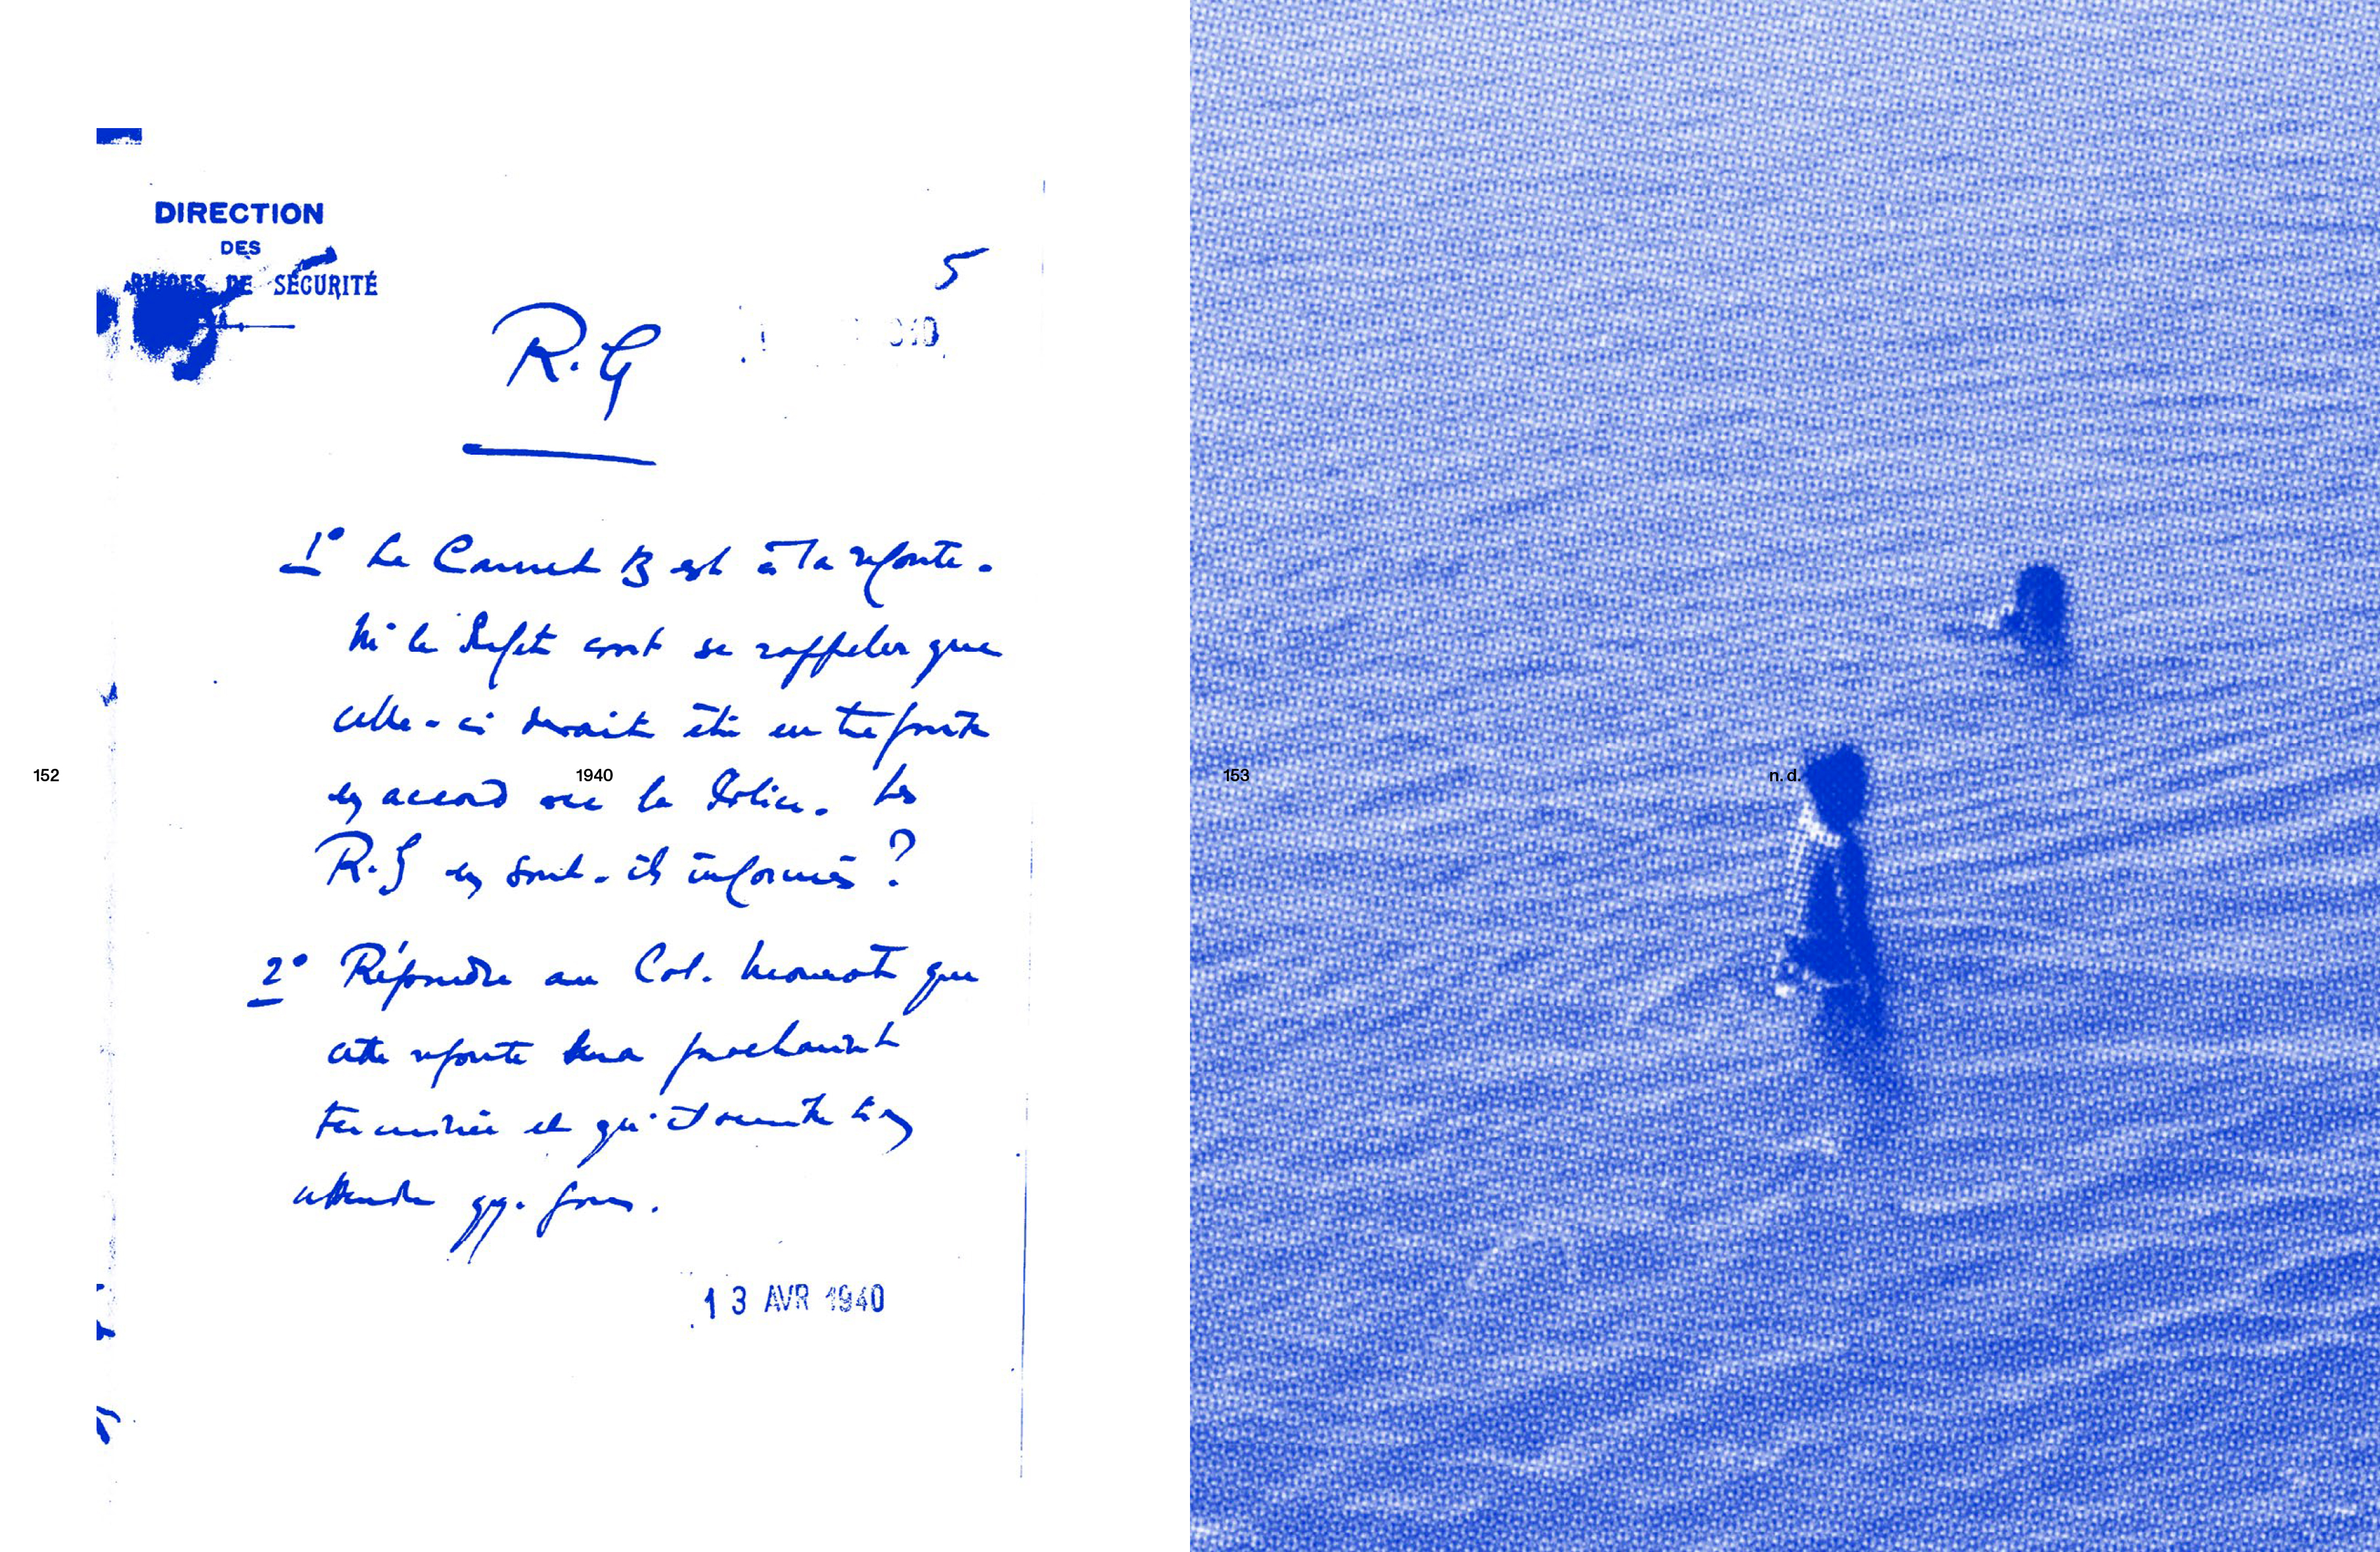 DIRECTION
DES
SÉCURITÉ
5
R.G
1° Le Carnet B est à la refonte.
le Préfet se rappeler que
celle-ci devait être
en accord avec la Police. Les
R.G en sont-ils informés ?
2° Répondre au Col. que
cette refonte sera prochainement
terminée et qu'il
attende qq. jours.
13 AVR 1940
152
1940
153
n. d.